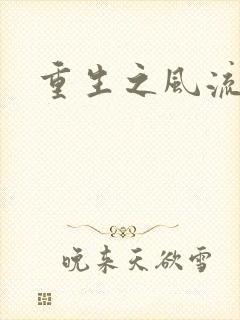 重生之风流
晚来天欲雪